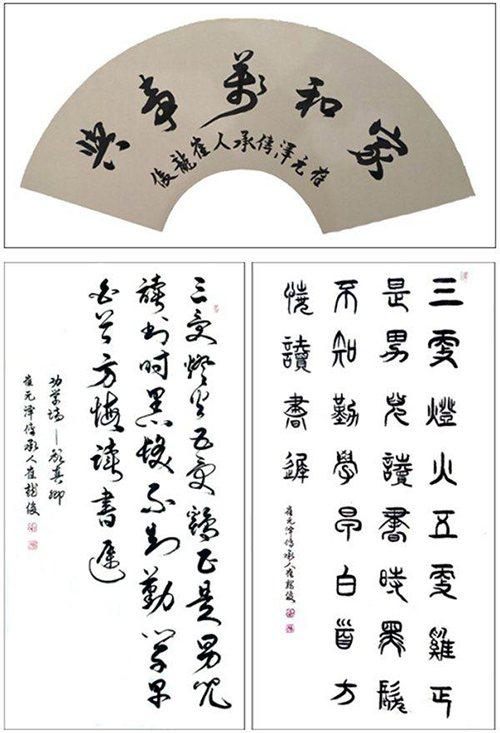 家和萬事興
崔元澤传承人崔龍俊
三更燈火五更雞正是男兒
读书时黑髮不知勤学早
白首方悔读書遲
劝学诗—颜真卿
崔元泽传承人崔龙俊
三更燈火五更雞正
是男兒讀書時黑髮
不知勤學早白首方
悔讀書遲
崔元泽传承人崔龙俊